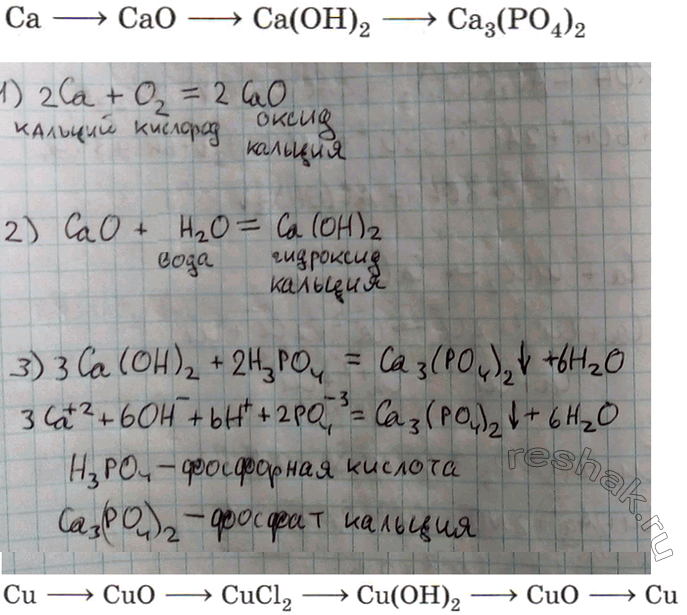 Ca ⟶ CaO ⟶ Ca(OH)₂ ⟶ Ca₃(PO₄)₂
1) 2Ca + O₂ = 2CaO
кальций кислород оксид
кальция
2) CaO + H₂O = Ca(OH)₂
вода гидроксид
кальция
3) 3Ca(OH)₂ + 2H₃PO₄ = Ca₃(PO₄)₂↓ + 6H₂O
3Ca⁺² + 6OH⁻ + 6H⁺ + 2PO₄⁻³ = Ca₃(PO₄)₂↓ + 6H₂O
H₃PO₄ – фосфорная кислота
Ca₃(PO₄)₂ – фосфат кальция
reshak.ru
Cu ⟶ CuO ⟶ CuCl₂ ⟶ Cu(OH)₂ ⟶ CuO ⟶ Cu